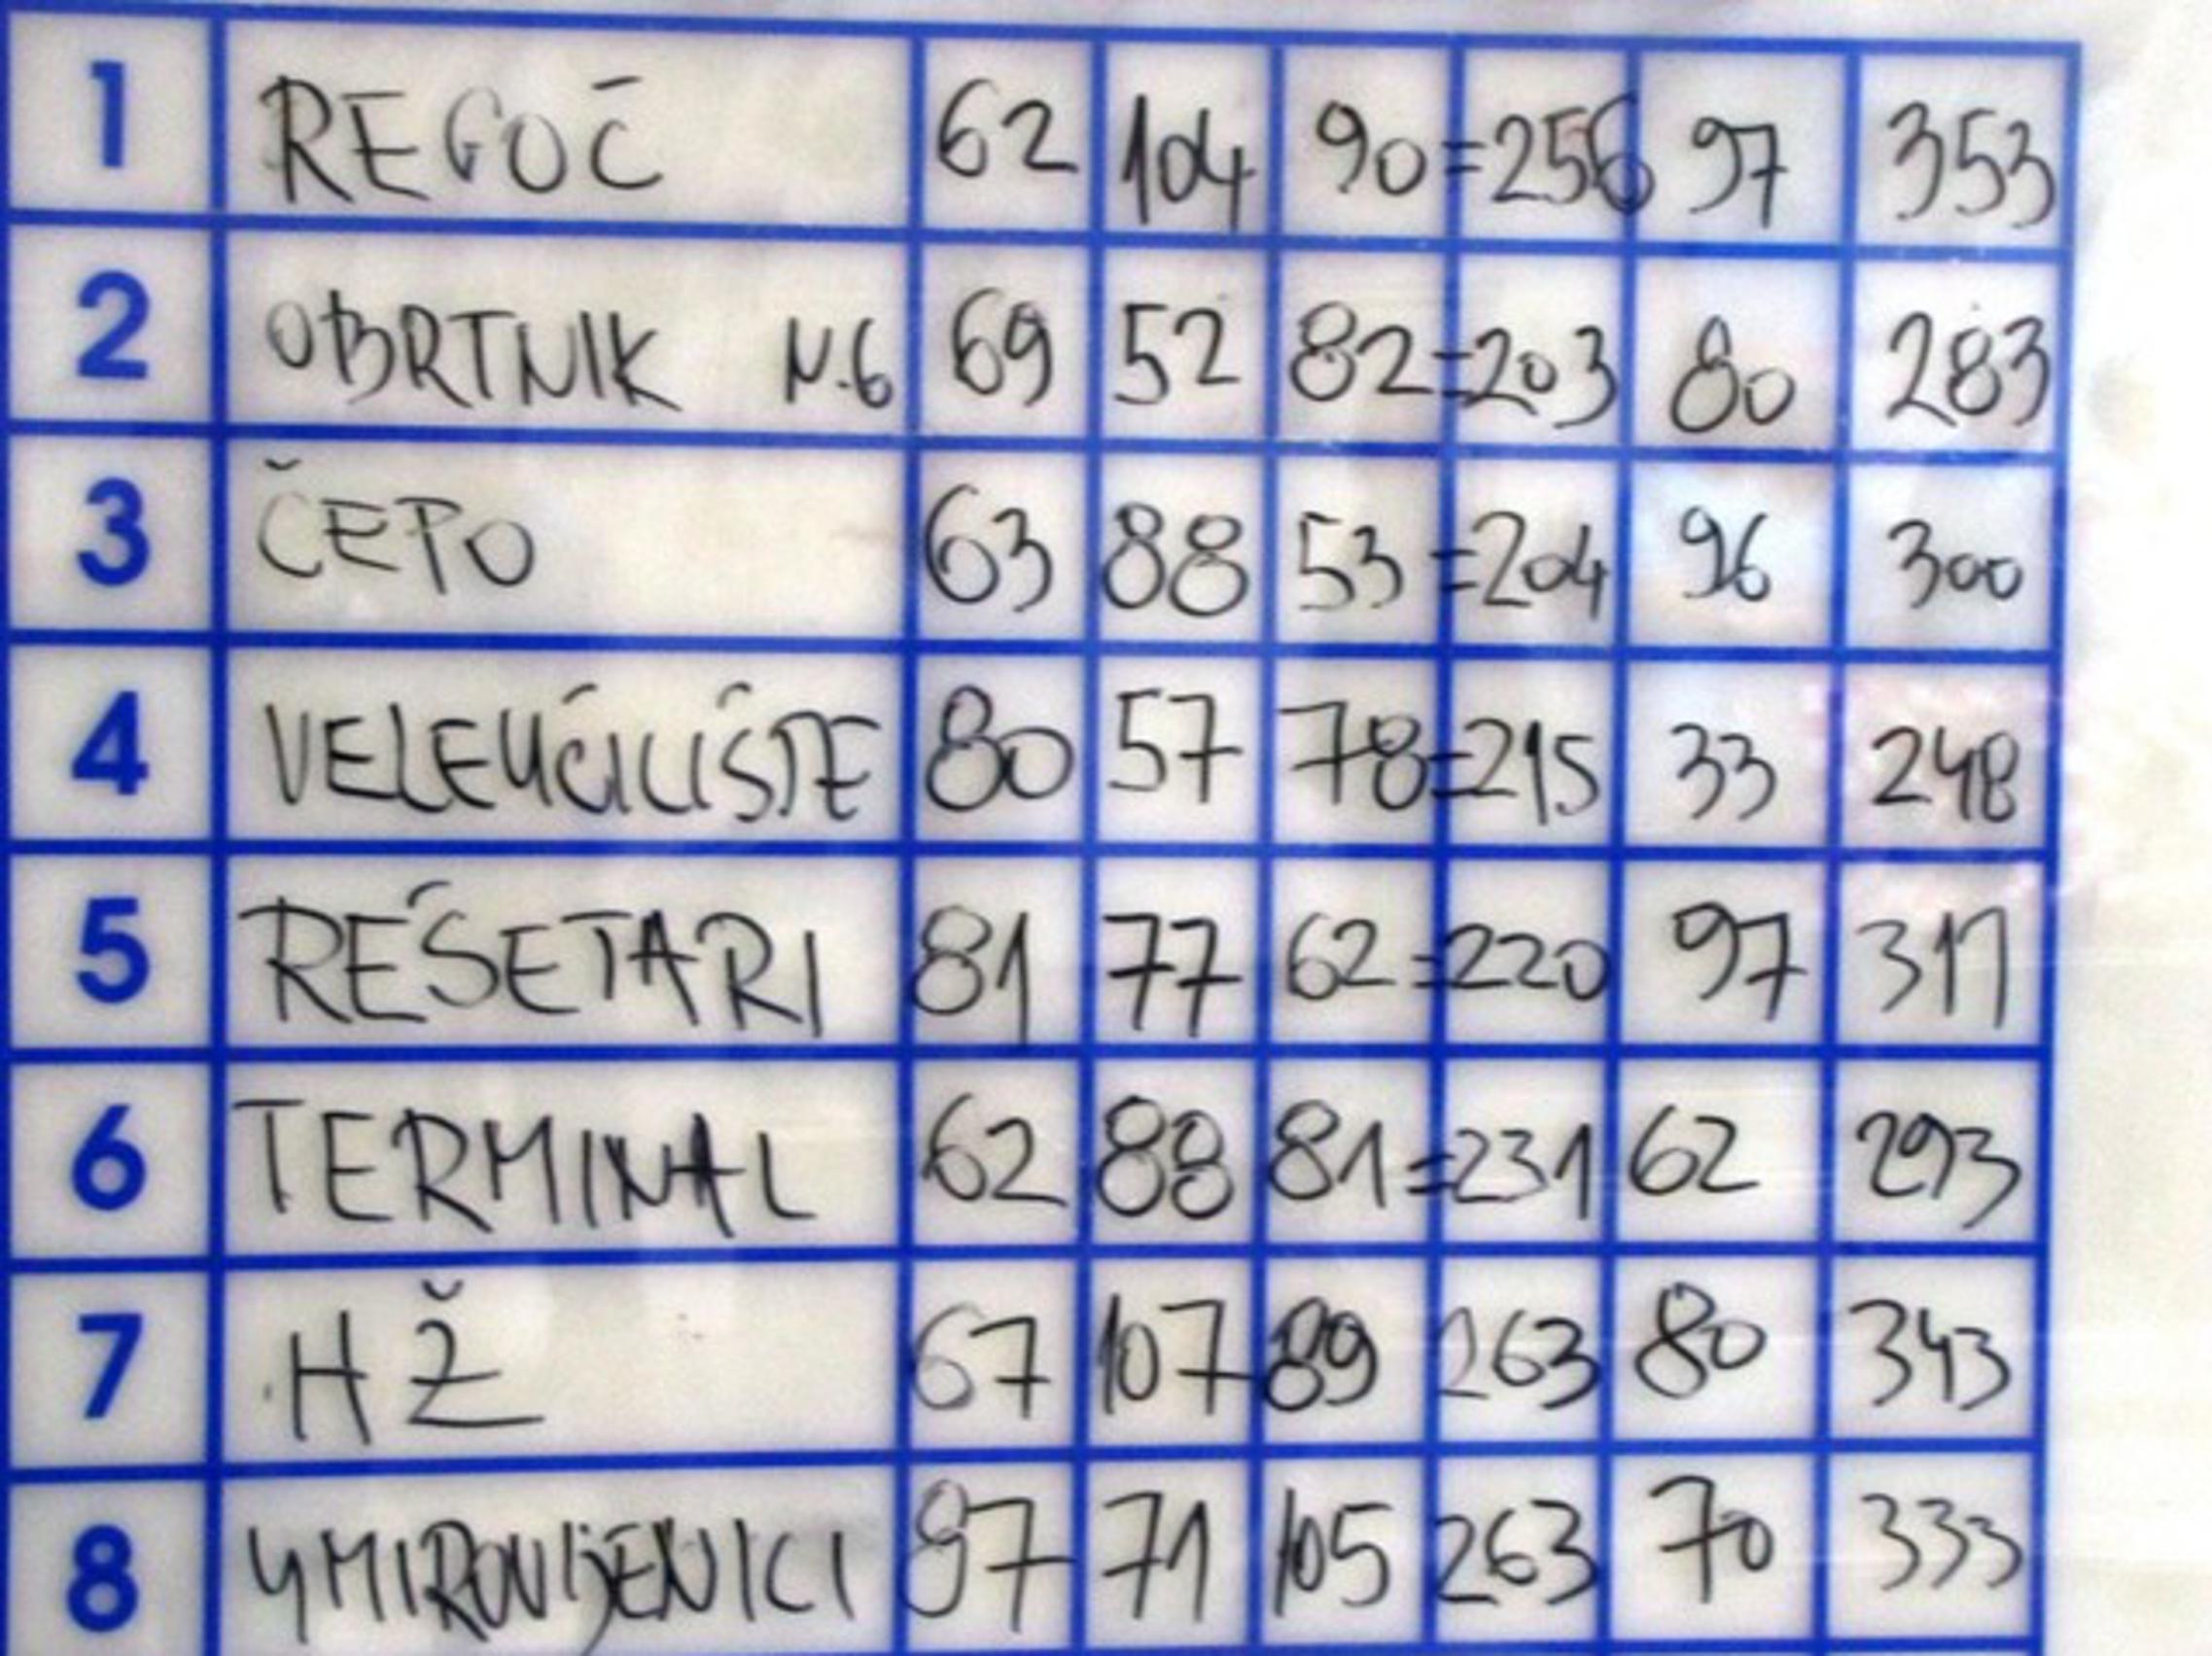 1 REGOČ 62 104 90 =256 97 353
2 OBRTNIK N.G 69 52 82 =203 80 283
3 ČEPO 63 88 53 =204 96 300
4 VELEUČILIŠTE 80 57 78 =215 33 248
5 REŠETARI 81 77 62 =220 97 317
6 TERMINAL 62 88 81 =231 62 293
7 HŽ 67 107 89 263 80 343
8 UMIROVLJENICI 87 71 105 263 70 333